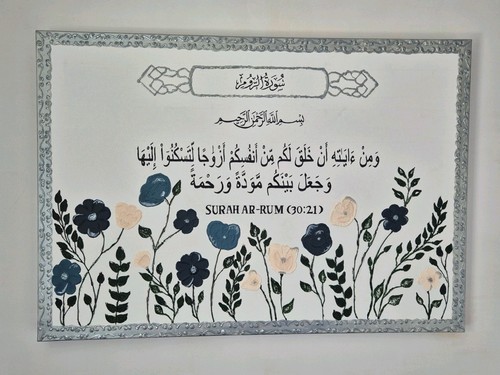 سُورَةُ الرُّومِ
بِسْمِ اللَّهِ الرَّحْمَٰنِ الرَّحِيمِ
وَمِنْ ءَايَـٰتِهِ أَنْ خَلَقَ لَكُم مِّنْ أَنفُسِكُمْ أَزْوَٰجًا لِّتَسْكُنُوٓا۟ إِلَيْهَا
وَجَعَلَ بَيْنَكُم مَّوَدَّةً وَرَحْمَةً
SURAH AR-RUM (30:21)